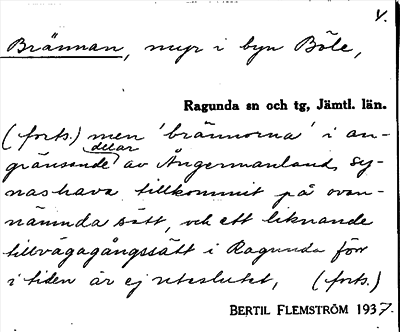 V.
Brännan, myr i byn Böle,
Ragunda sn och tg, Jämtl. län.
(forts.) men 'brännorna' i an-
gränsande delar av Ångermanland sy-
nas hava tillkommit på ovan-
nämnda sätt, och ett liknande
tillvägagångssätt i Ragunda förr
i tiden är ej uteslutet, (forts.)
BERTIL FLEMSTRÖM 1937.